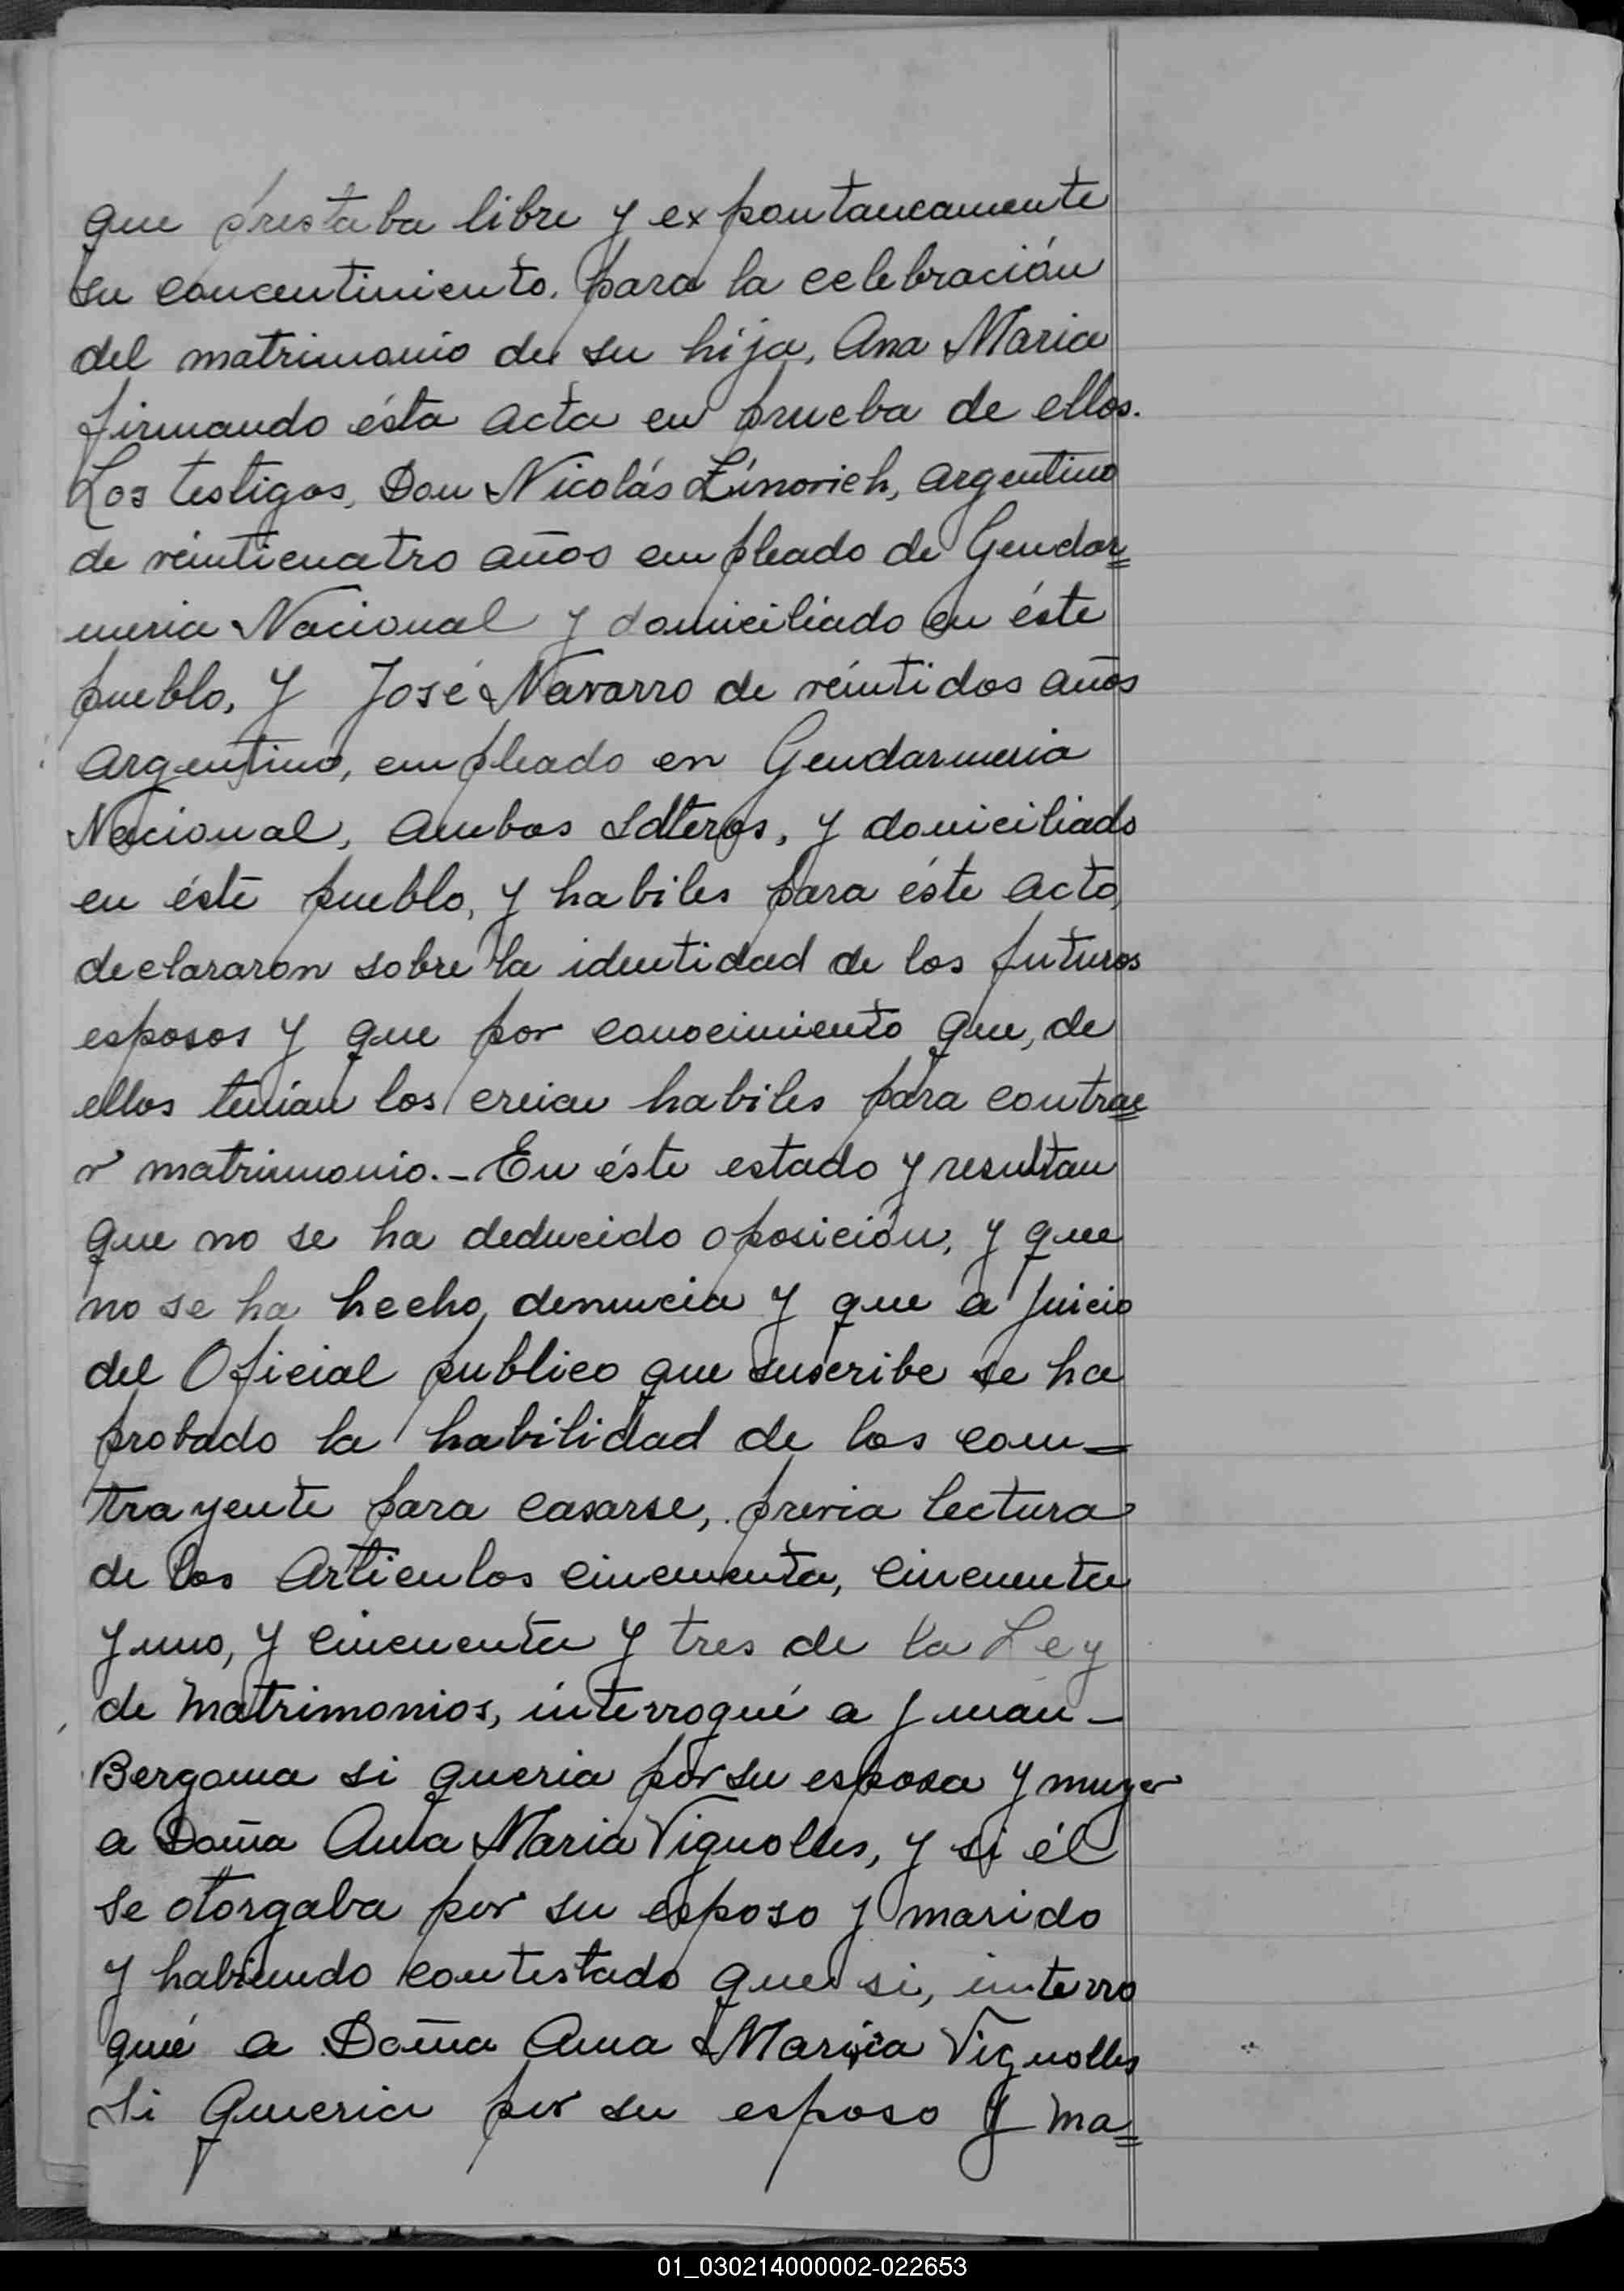 que prestaba libre y expontaneamente
su concentimiento, para la celebración
del matrimonio de su hija, Ana Maria
firmando ésta acta en prueba de ellos.
Los testigos, Don Nicolás Línovich, argentino
de veinticuatro años empleado de Gendar=
meria Nacional y domiciliado en éste
pueblo, y José Navarro de veintidos años
argentino, empleado en Gendarmeria
Nacional, ambos solteros, y domiciliado
en éste pueblo, y habiles para éste acto,
declararon sobre la identidad de los futuros
esposos y que por conocimiento que, de
ellos tenían los creian habiles para contrae=
r matrimonio.- En éste estado y resultan
que no se ha deducido oposición, y que
no se ha hecho, denuncia y que a juicio
del Oficial publico que suscribe se ha
probado la habilidad de los con-
trayente para casarse, previa lectura
de los Articulos cincuenta, cincuenta
y uno, y cincuenta y tres de la Ley
de Matrimonios, interrogué a Juan-
Bergoma si queria por su esposa y muger
a Doña Ana Maria Vignolles, y si él
se otorgaba por su esposo y marido
y habiendo contestado que si, interro
gué a Doña Ana Maria Vignolles
si queria por su esposo y ma=
01_030214000002-022653